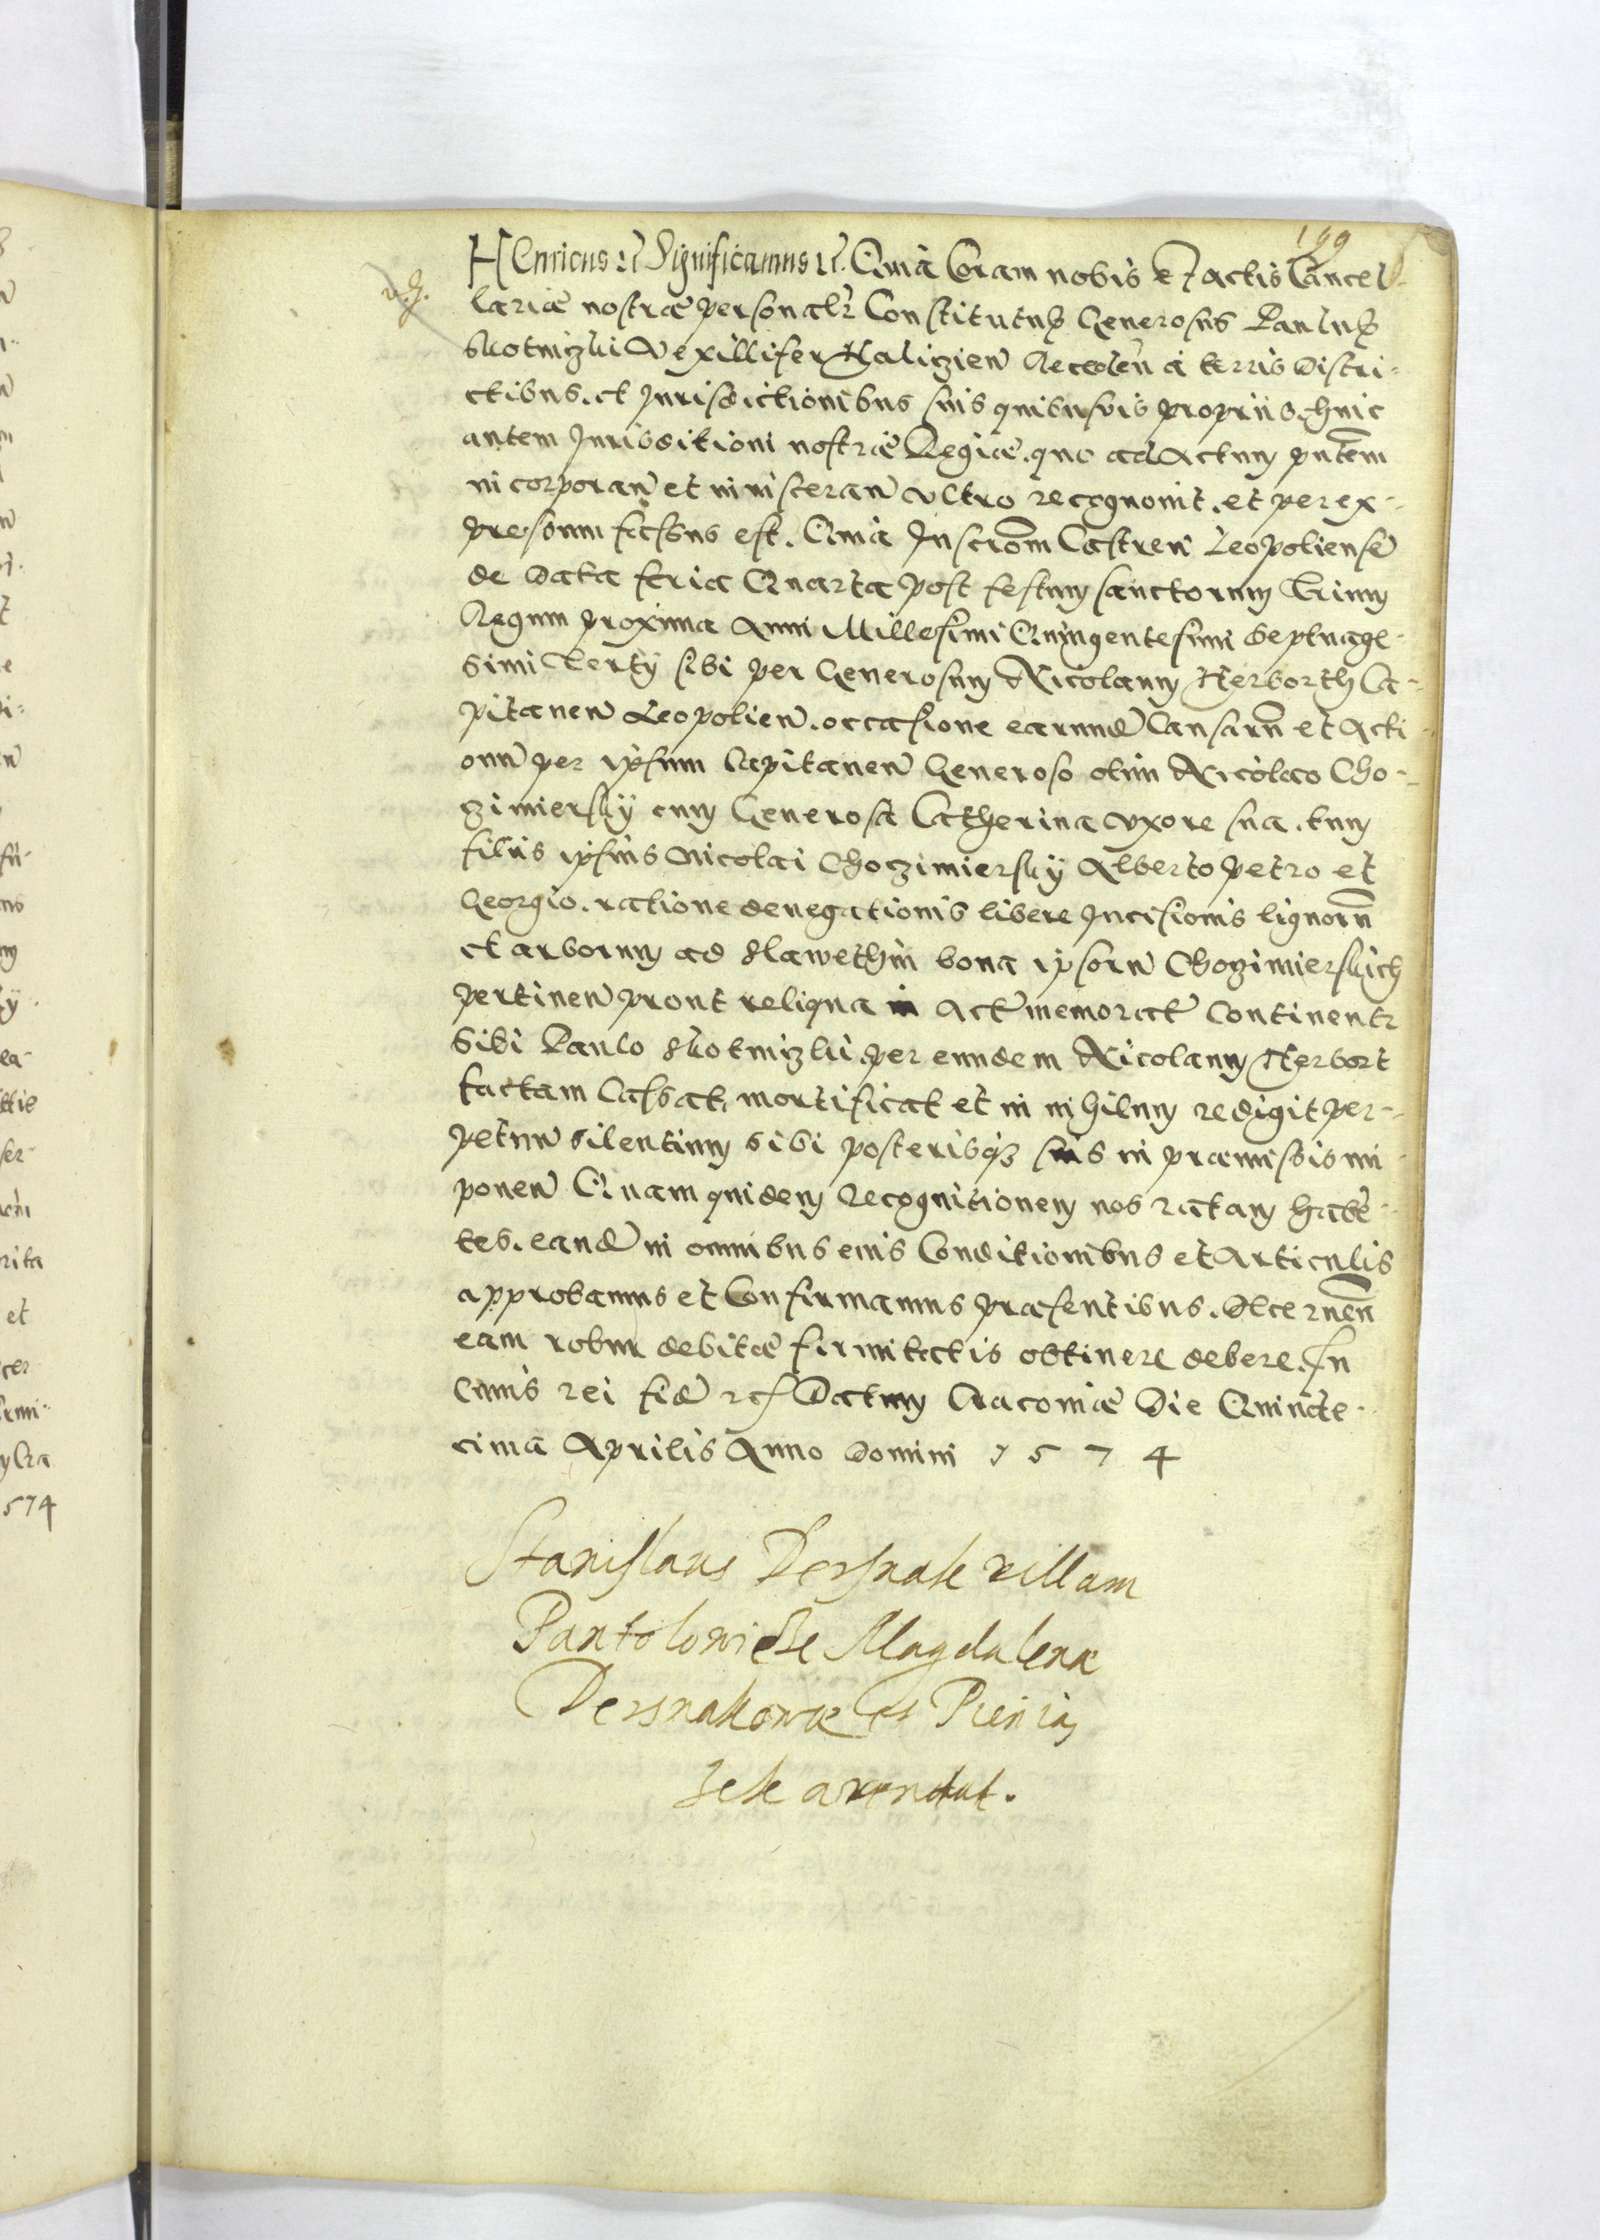 199
HEnricus etc Significamus etc. Quia Coram nobis et actis Cancel-
lariæ nostræ personalr Constitutus Generosus Paulus
Skotniczki Vexillifer Haliczien Receden a terris Distri-
ctibus. et Jurisdictionibus suis quibusvis propriis. huic
autem Jurisditioni nostræ Regiæ. quo ad Actum pntem
incorporan et invisceran ultro recognovit. et per ex-
pressum fassus est. Quia Inscrom Castren Leopoliense
de Data feria Quarta post festum sanctorum Trium
Regum proxima Anni Millesimi Quingentesimi Septuage-
simi Tertÿ sibi per Generosum Nicolaum Herborth Ca-
pitaneu Leopolien. occasione earund Causaru et Acti
onu per ipsum Capitaneu Generoso olim Nicolao Cho-
zimierskÿ cum Generosa Catherina Uxore sua. tum
filiis ipsius Nicolai Choczimierskÿ Alberto Petro et
Georgio. ratione denegationis libere Incisionis lignoru
et arborum ad Hawethin bona ipsoru Chozimierskich
pertinen prout reliqua in Act memorat Continentr
Sibi Paulo Skotnizki per eundem Nicolaum Herbort
factam Cassat, mortificat et in nihilum redigit per-
petuu silentium sibi posterisq suis in præmissis im
ponen Quam quidem Recognitionem nos ratam habe-
tes. eand in omnibus eius Conditionibus et Articulis
approbamus et Confirmamus præsentibus. Decernen
eam robur debitæ firmitatis obtinere debere. In
Cuius rei fid etc Datum Cracoviæ Die Quinde-
cima Aprilis Anno Domini 1574
Stanislaus Dersnak villam
Pantolowicze Magdalenæ
Dersnakowæ et Pienią
zek arendat.